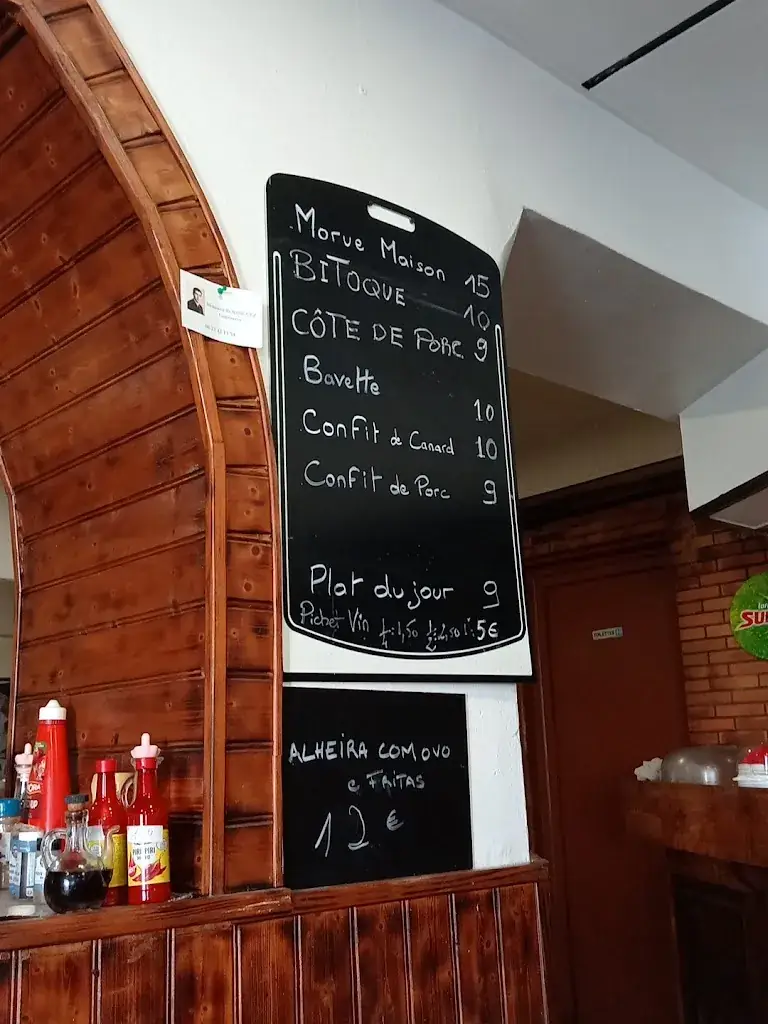 Morue Maison 15
BiTOQUE 10
CÔTE DE PORC 9
Bavette 10
Confit de Canard 10
Confit de Porc 9
Plat du jour 9
Pichet Vin 1/4: 1,50 1/2: 2,50 1: 5€
ALHEIRA COM OVO
e FRITAS
12€
PIRI PIRI
TOILETTES